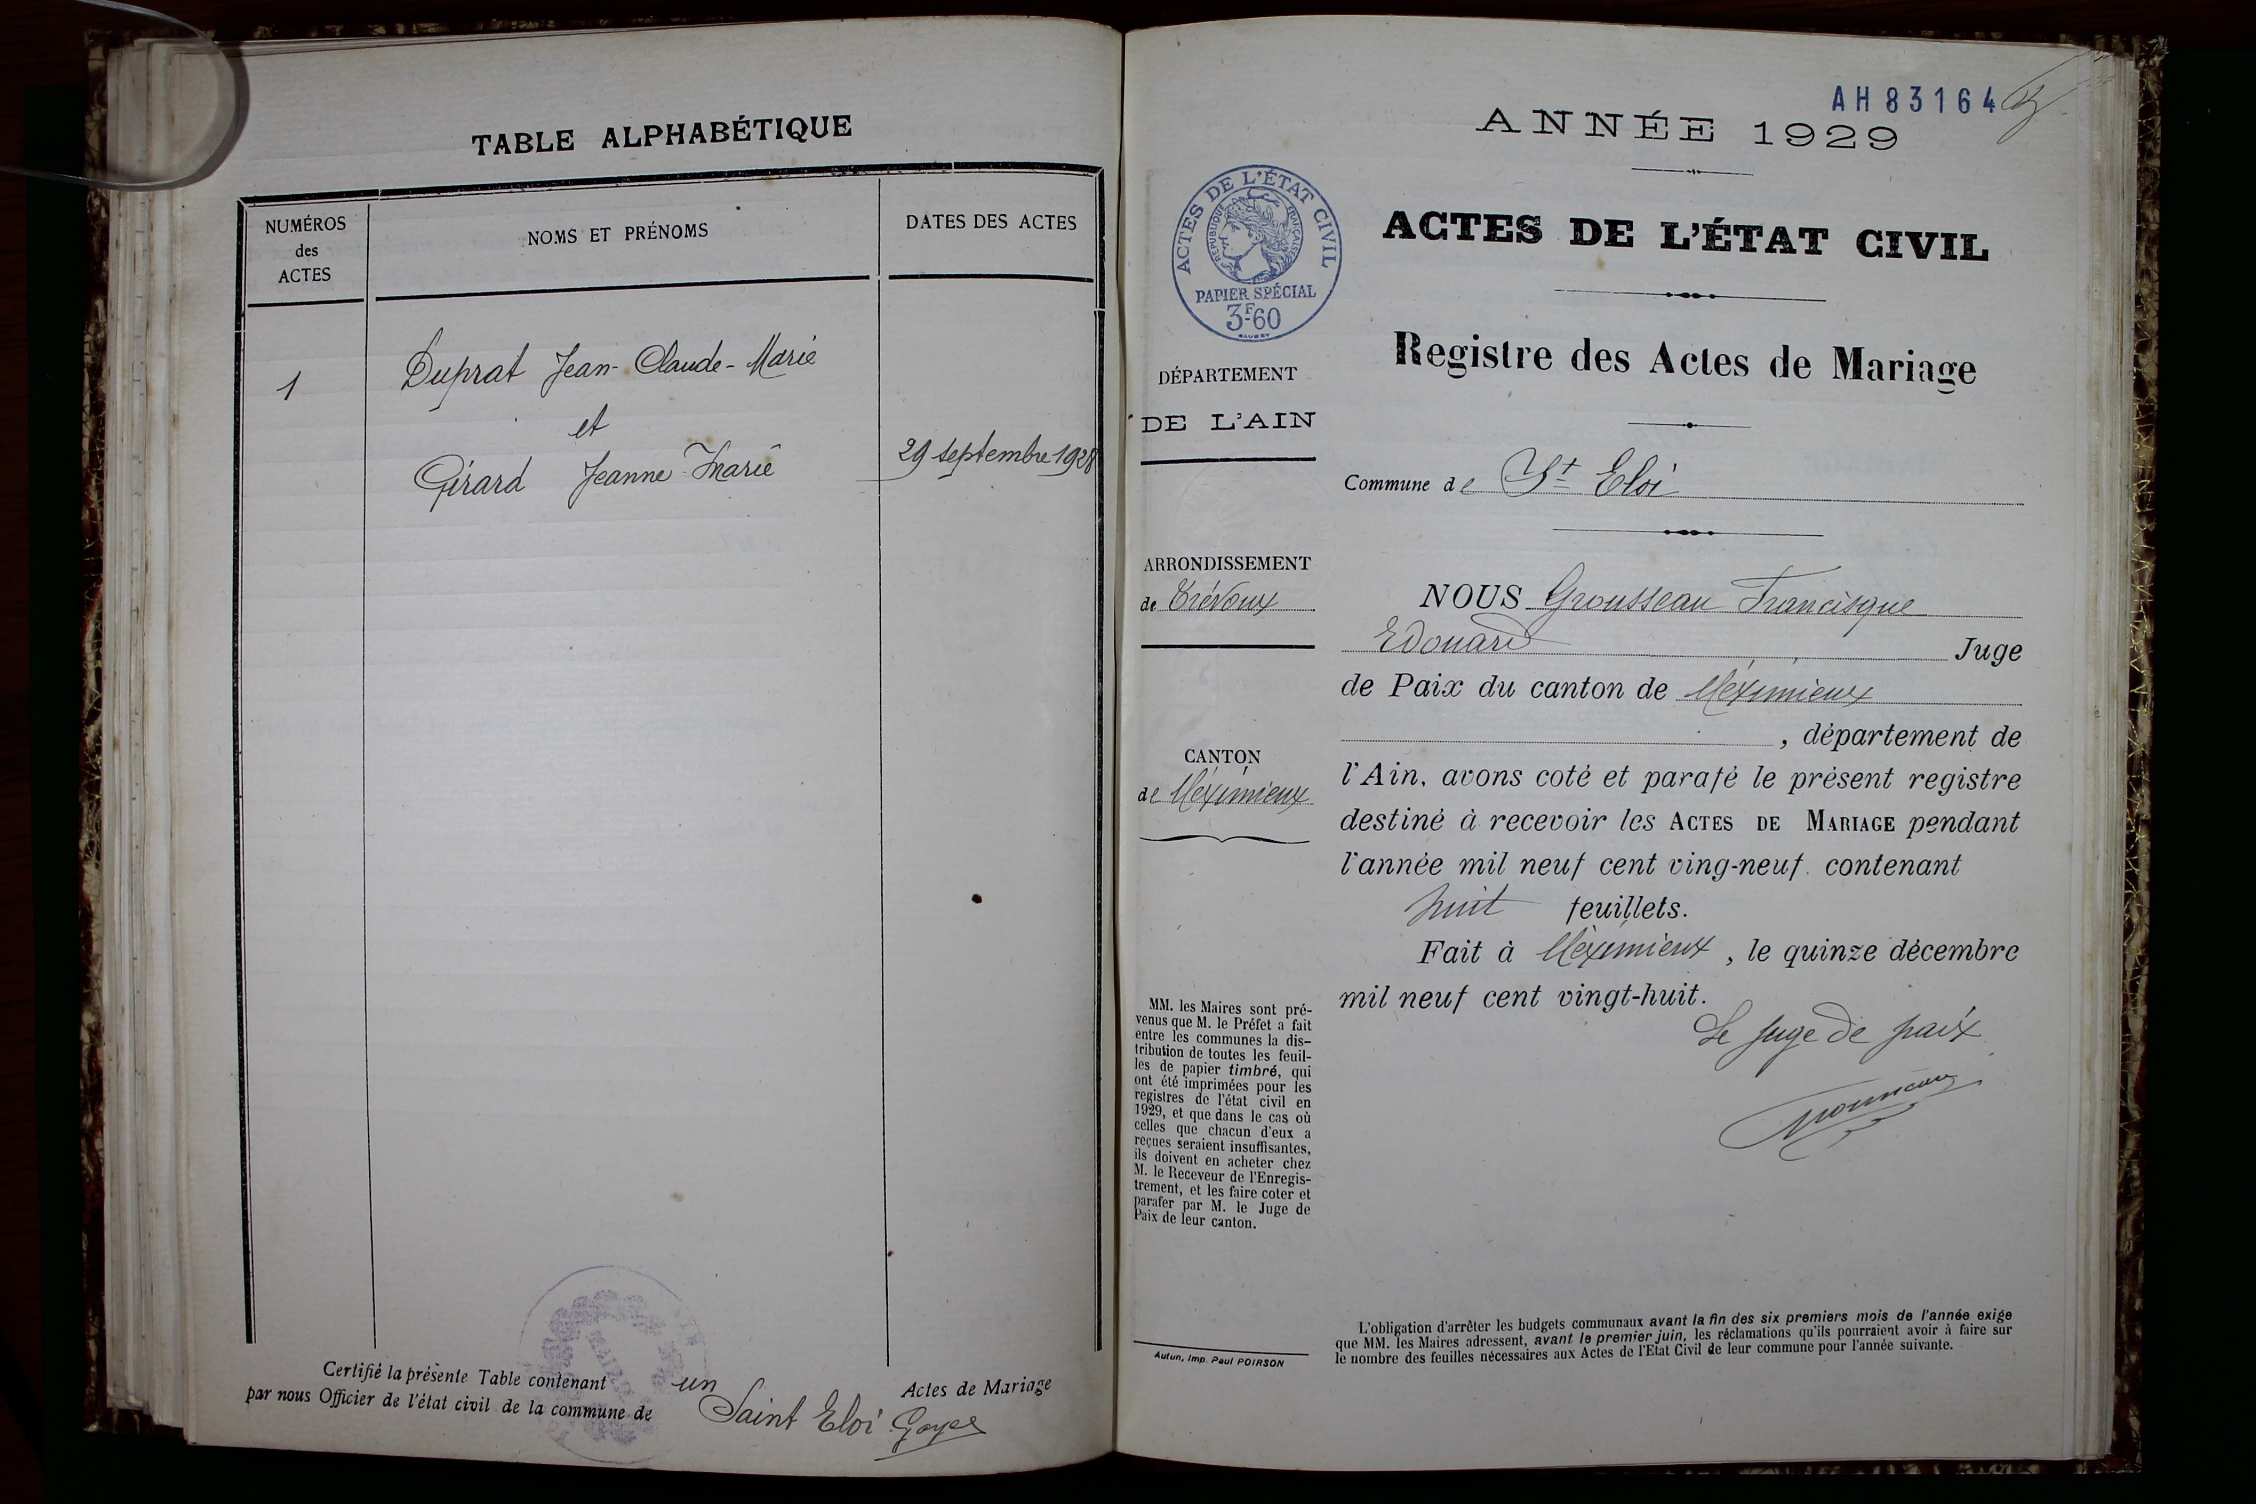 TABLE ALPHABÉTIQUE
NUMÉROS
des
ACTES
NOMS ET PRÉNOMS
DATES DES ACTES
1
Duprat Jean-Claude-Marie
et
Girard Jeanne Marie
29 septembre 1928
Certifié la présente Table contenant un Actes de Mariage
par nous Officier de l'état civil de la commune de Saint Eloi
AH83164
ANNÉE 1929
ACTES DE L'ÉTAT CIVIL
RÉPUBLIQUE FRANÇAISE
PAPIER SPÉCIAL
3F60
ACTES DE L'ÉTAT CIVIL
Registre des Actes de Mariage
DÉPARTEMENT
DE L'AIN
Commune de St Eloi
ARRONDISSEMENT
de Trévoux
CANTON
de Méximieux
NOUS Grousseau Francisque
Edouard Juge
de Paix du canton de Méximieux
, département de
l'Ain, avons coté et parafé le présent registre
destiné à recevoir les ACTES DE MARIAGE pendant
l'année mil neuf cent ving-neuf. contenant
huit feuillets.
Fait à Méximieux, le quinze décembre
mil neuf cent vingt-huit.
Le juge de paix
MM. les Maires sont pré-
venus que M. le Préfet a fait
entre les communes la dis-
tribution de toutes les feuil-
les de papier timbré, qui
ont été imprimées pour les
registres de l'état civil en
1929, et que dans le cas où
celles que chacun d'eux a
reçues seraient insuffisantes,
ils doivent en acheter chez
M. le Receveur de l'Enregis-
trement, et les faire coter et
parafer par M. le Juge de
Paix de leur canton.
Autun, Imp. Paul POIRSON
L'obligation d'arrêter les budgets communaux avant la fin des six premiers mois de l'année exige
que MM. les Maires adressent, avant le premier juin, les réclamations qu'ils pourraient avoir à faire sur
le nombre des feuilles nécessaires aux Actes de l'Etat Civil de leur commune pour l'année suivante.